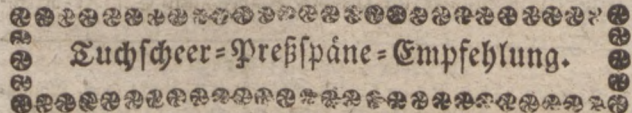 Tuchſcheer-Preßſpäne-Empfehlung.